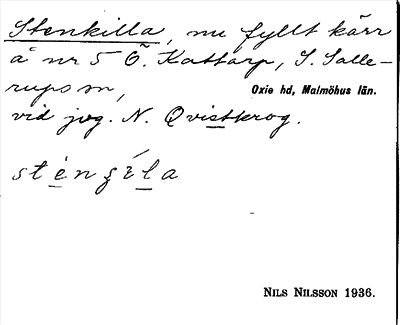 Stenkilla, nu fyllt kärr
å nr 5 Ö. Kattarp, S. Salle-
rups sn, Oxie hd, Malmöhus län.
vid jvg. N. Qvistkrog.
sténʒìla
NILS NILSSON 1936.